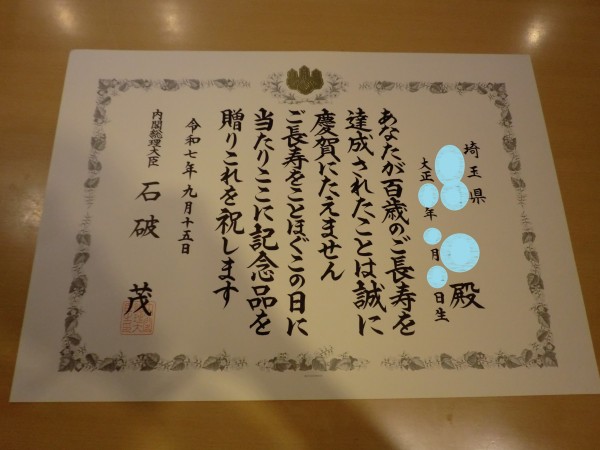 埼玉県
殿
大正年月日生
あなたが百歳のご長寿を
達成されたことは誠に
慶賀にたえません
ご長寿をことほぐこの日に
当たりここに記念品を
贈りこれを祝します
令和七年九月十五日
内閣総理大臣 石破 茂